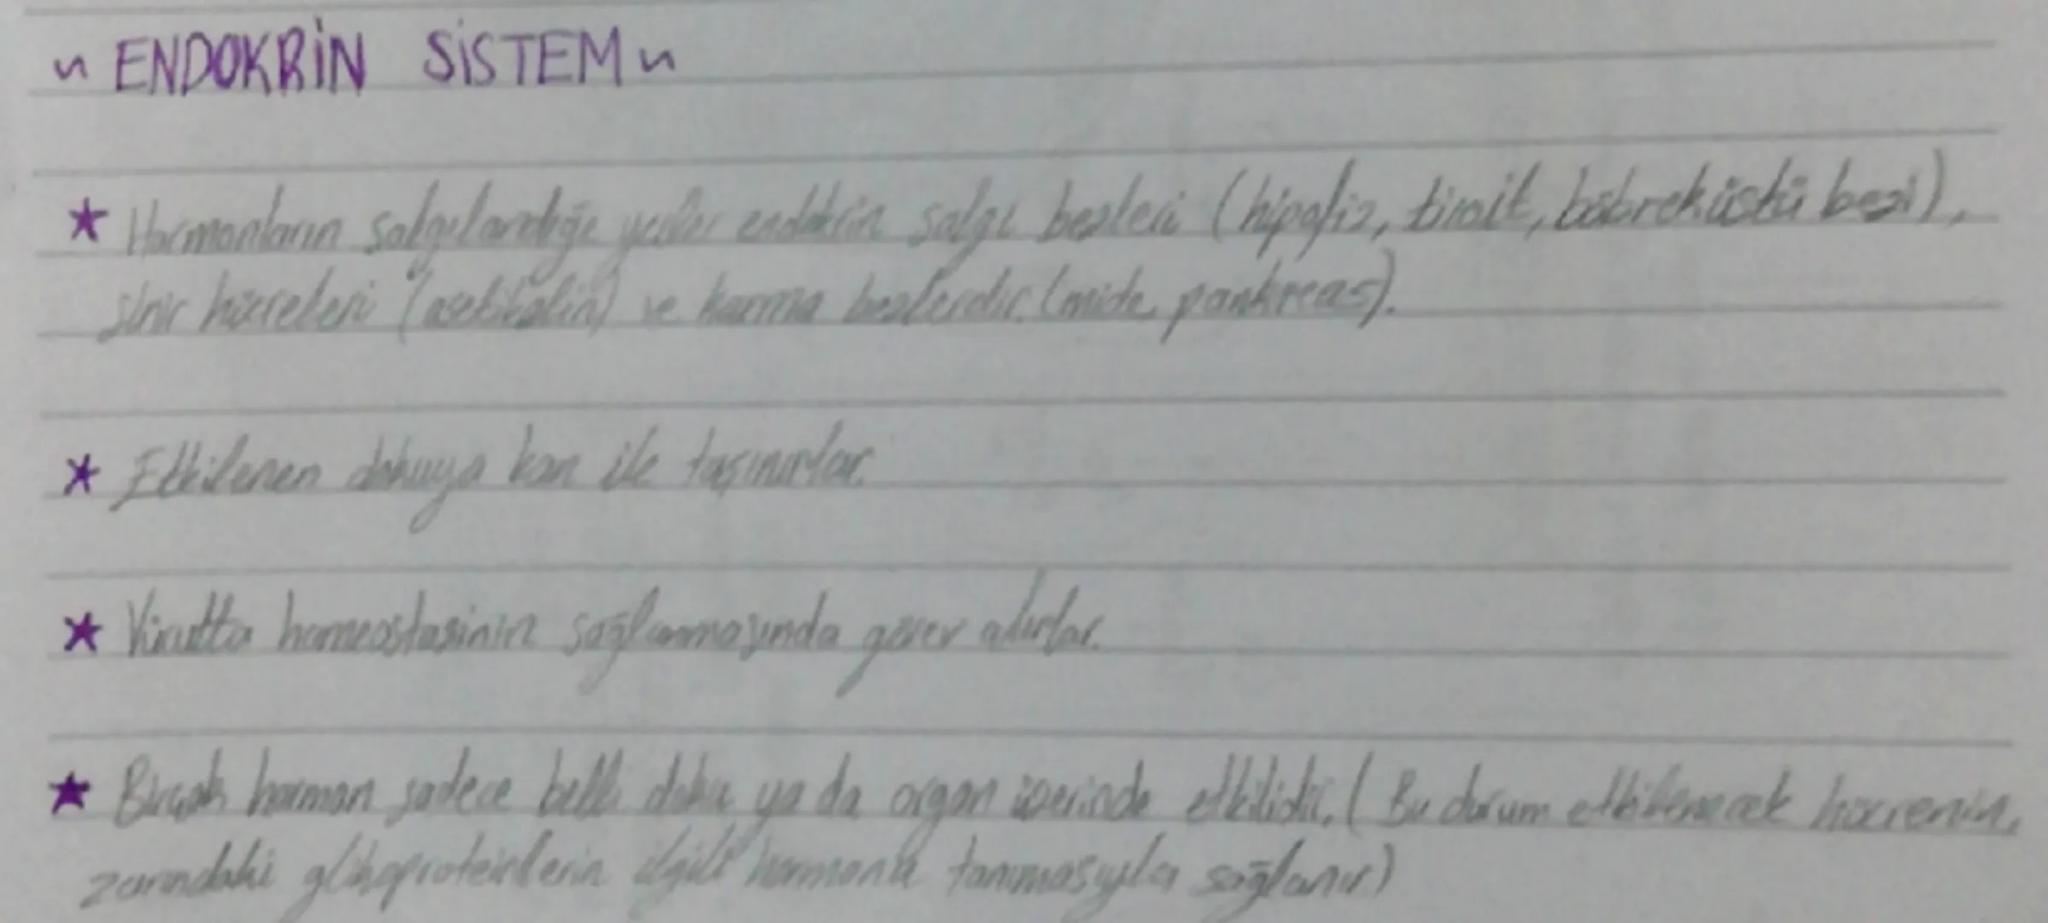 ~ ENDOKRİN SİSTEM ~
★ Hormonların salgılandığı yerler endokrin salgı bezleri (hipofiz, tiroit, böbreküstü bezi),
sinir hücreleri (asetilkolin) ve karma bezlerdir. (mide, pankreas).
★ Etkilenen dokuya kan ile taşınırlar.
★ Vücutta homeostasinin sağlanmasında görev alırlar.
★ Birçok hormon sadece belli doku ya da organ üzerinde etkilidir. (Bu durum etkilenecek hücrenin,
zarındaki glikoproteinlerin ilgili hormonu tanımasıyla sağlanır)